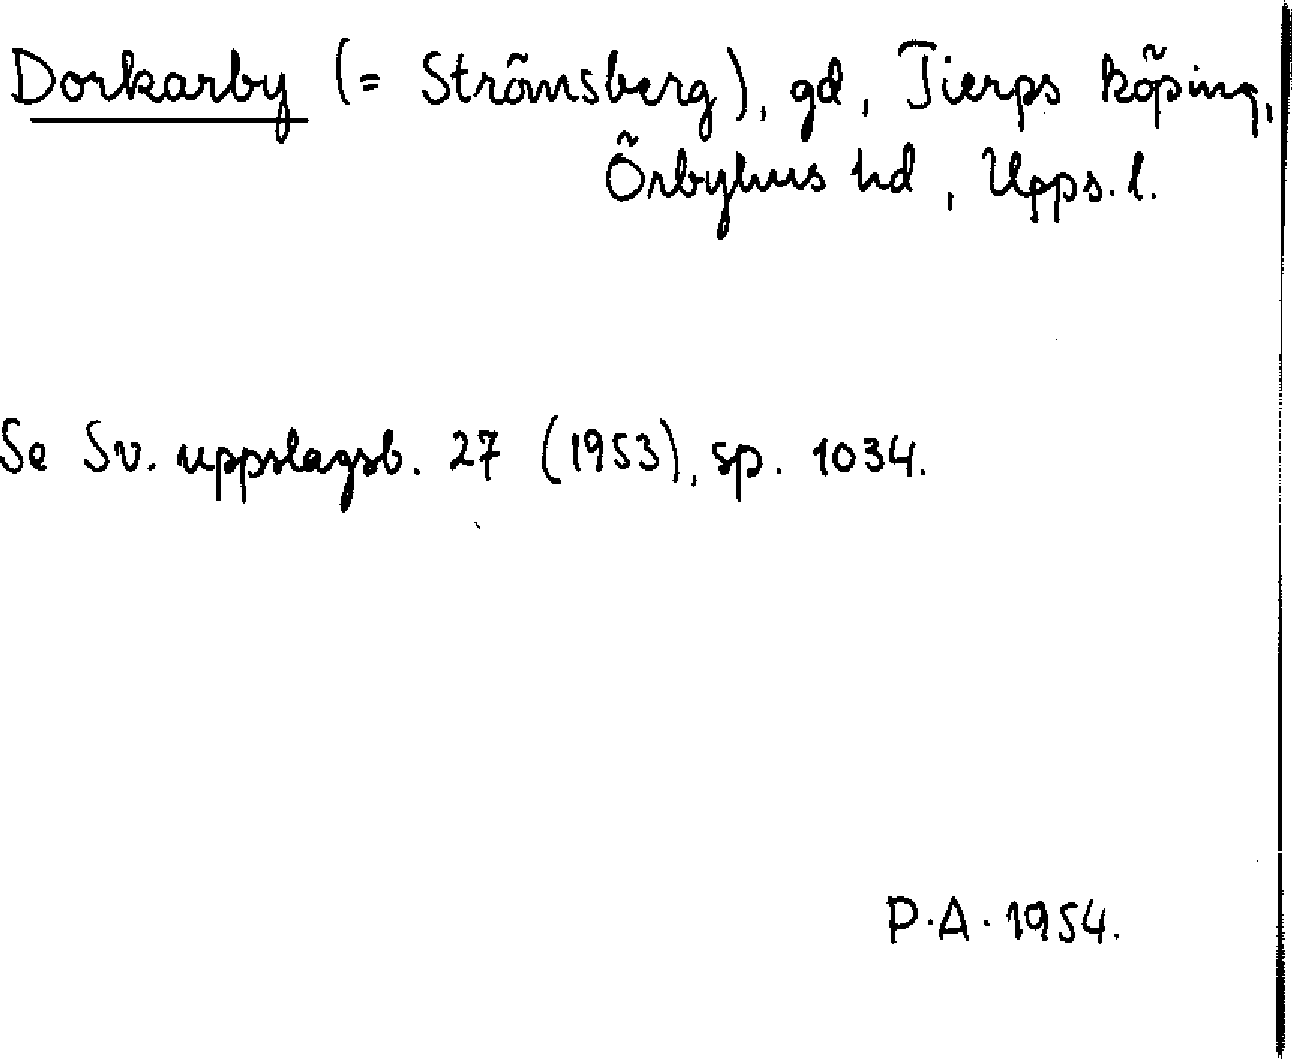 Dorkarby (= Strömsberg), gd, Tierps köping,
Örbyhus hd, Upps. l.
Se Sv. uppslagsb. 27 (1953), sp. 1034.
P.A. 1954.